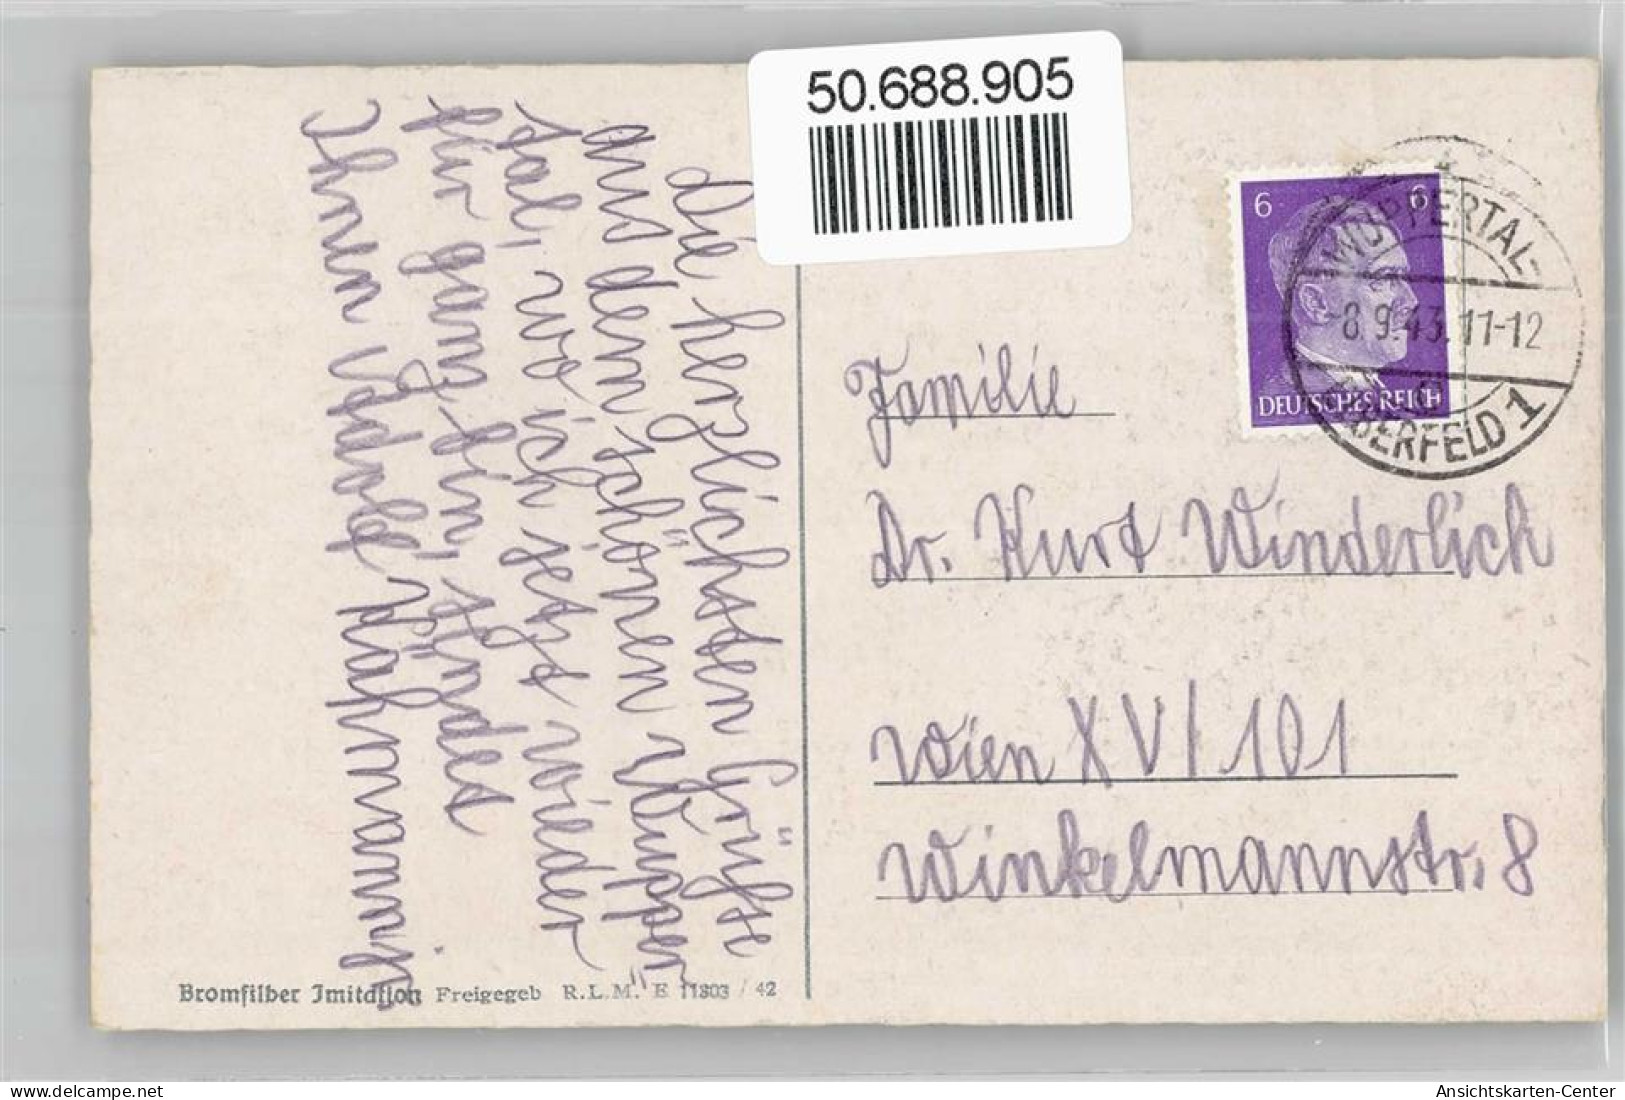 50.688.905
Die herzlichsten Grüße
aus dem schönen Wupper=
tal, wo ich jetzt wieder
für ganz bin, sendet
Ihnen
6 6
DEUTSCHES REICH
WUPPERTAL-
-8.9.43.11-12
ELBERFELD 1
Familie
Dr. Kurt Winderlich
Wien XVI/101
Winkelmannstr. 8
Bromsilber Imitation Freigegeb R.L.M. E 11803 / 42
delcampe.net
Ansichtskarten-Center